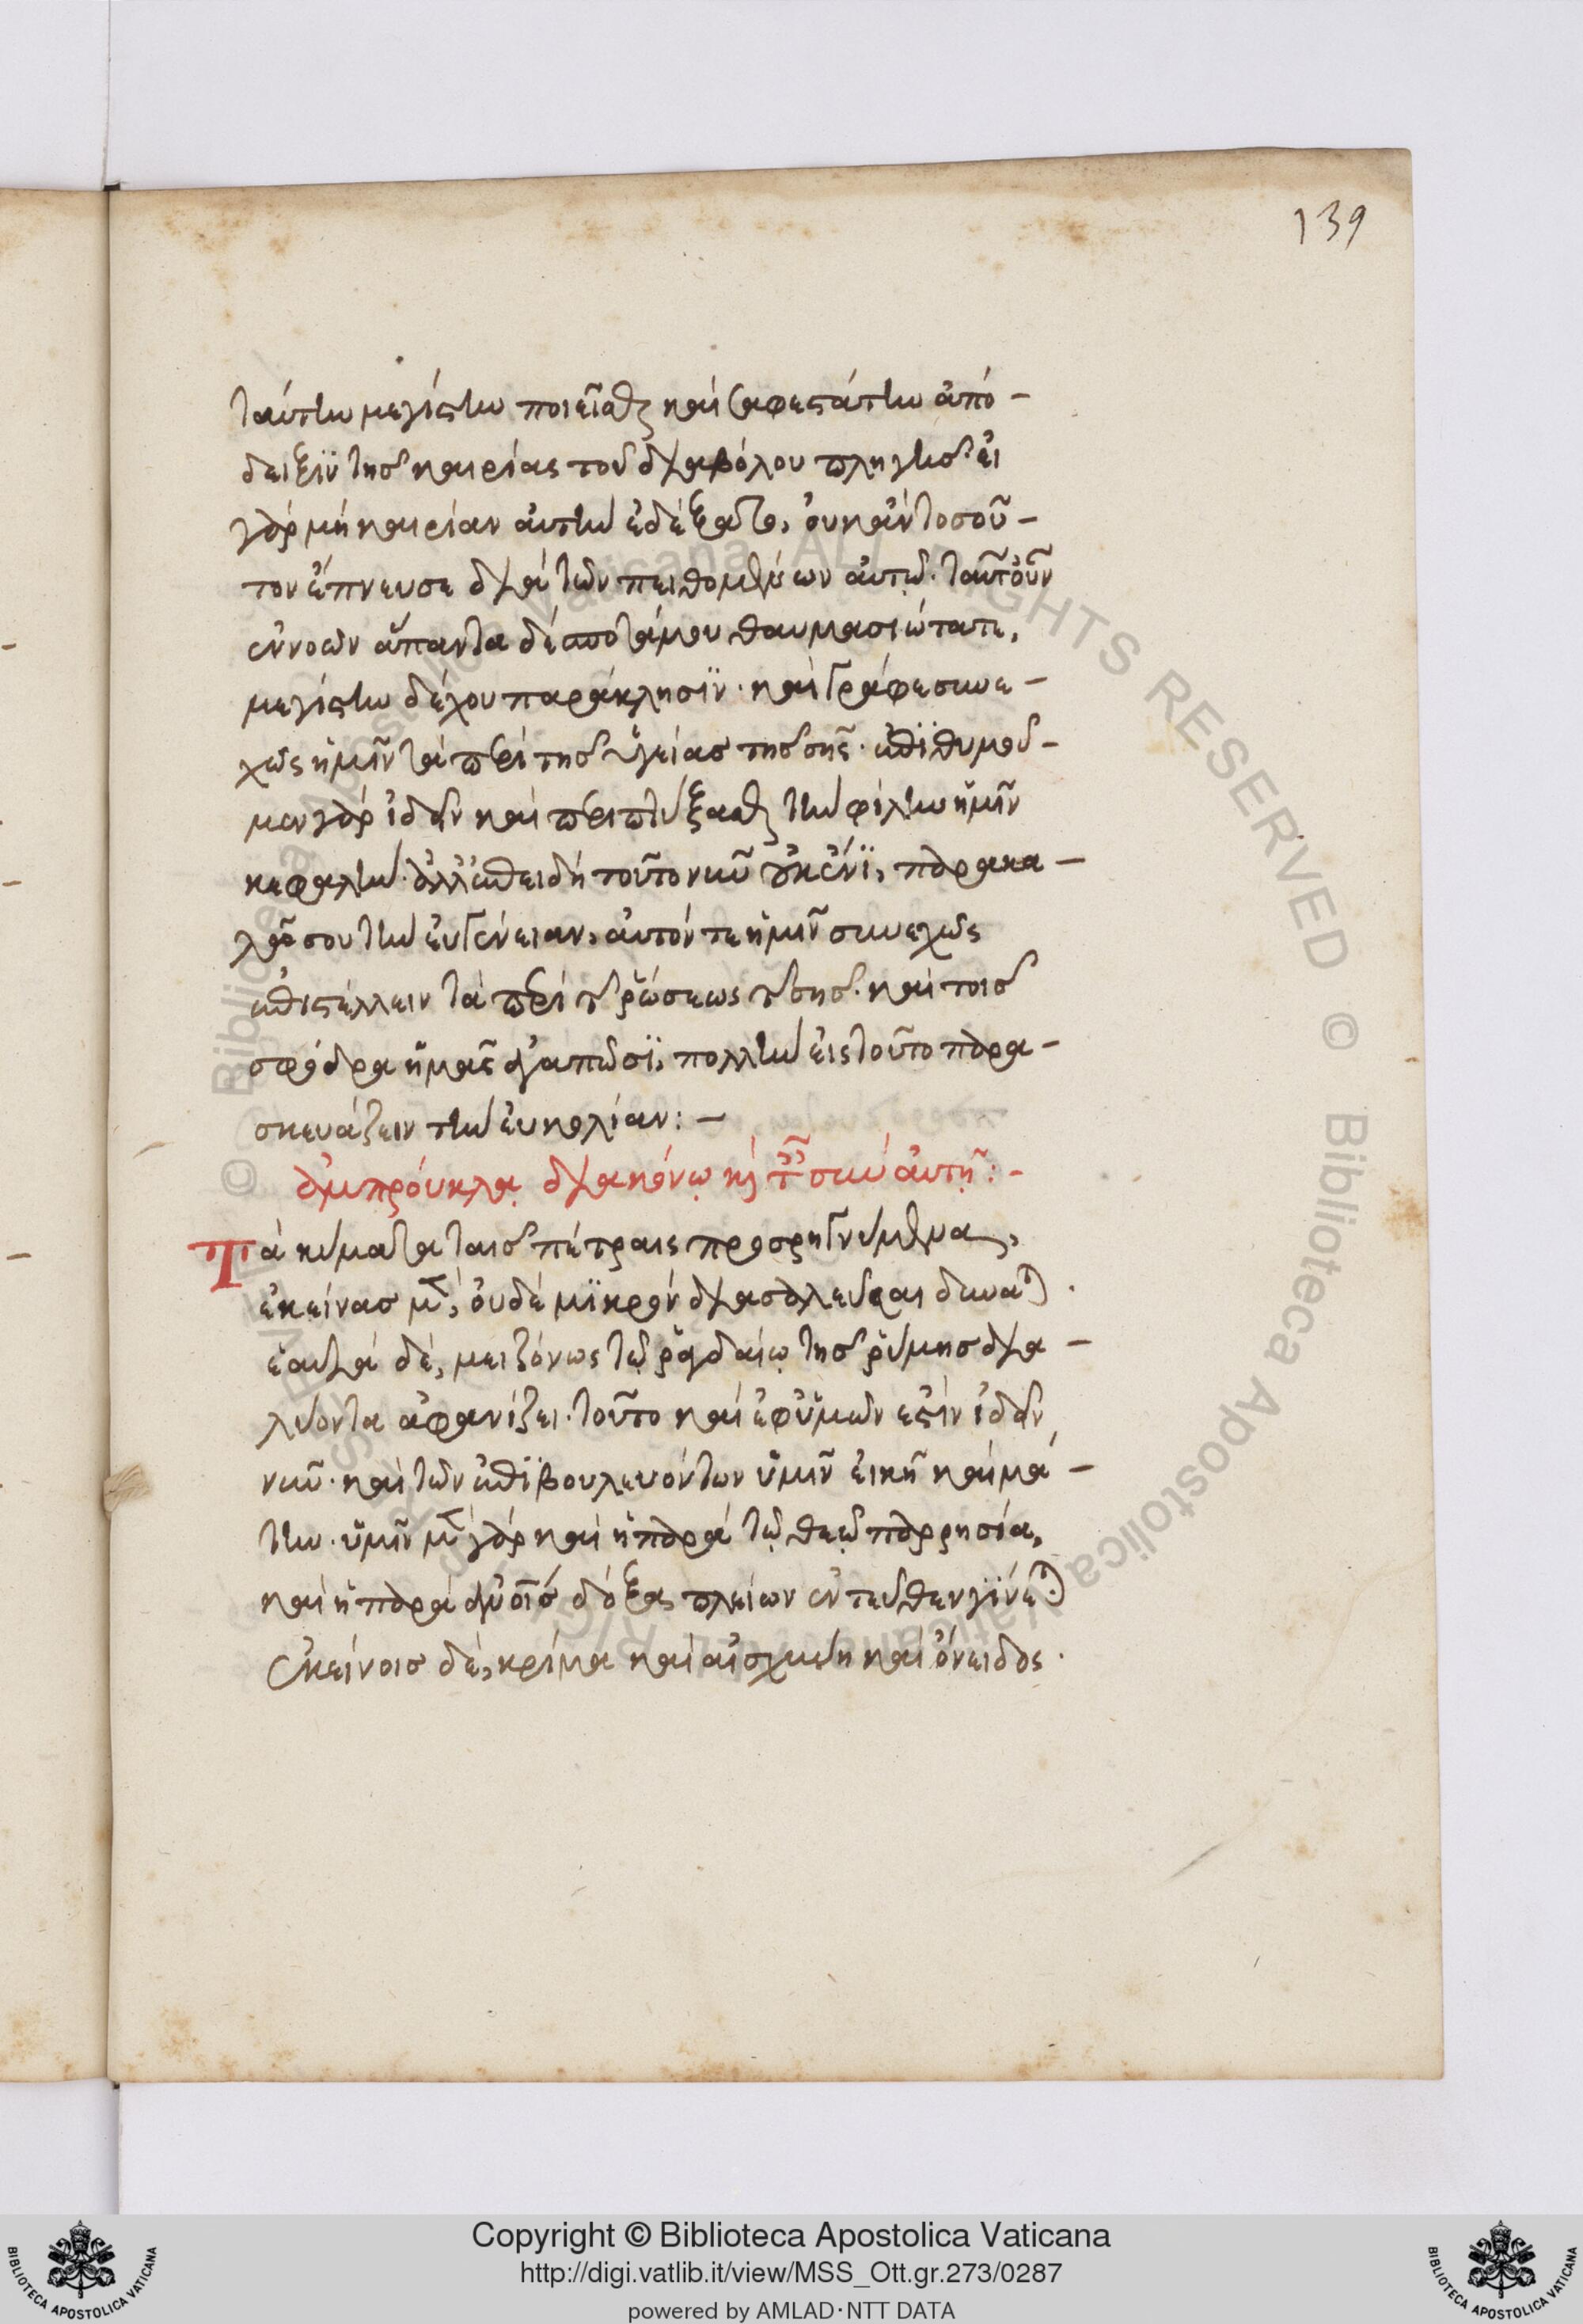 139
ταύτην μεγίστην ποιεῖσθαι καὶ σαφεστάτην ἀπό -
δειξιν τῆς καιρίας τοῦ διαβόλου πληγῆς. εἰ
γὰρ μὴ καιρίαν αὐτὴν ἐδέξατο, οὐκ ἂν τοσοῦ -
τον ἔπνευσε διὰ τῶν πειθομένων αὐτῷ. ταῦτ' οὖν
ἐννοῶν ἅπαντα δέσποτά μου θαυμασιώτατε,
μεγίστην δέχου παράκλησιν. καὶ γράφε συνε -
χῶς ἡμῖν τὰ περὶ τῆς ὑγείας τῆς σῆς. ἐπιθυμοῦ -
μεν γὰρ ἰδεῖν καὶ περιπτύξασθαι τὴν φίλην ἡμῖν
κεφαλήν. ἀλλ' ἐπειδὴ τοῦτο νῦν οὐκ ἔνι, παρακα -
λῶ σου τὴν εὐγένειαν, αὐτόν τε ἡμῖν συνεχῶς
ἐπιστέλλειν τὰ περὶ τῆς ῥώσεως τῆς σῆς. καὶ τοῖς
σφόδρα ἡμᾶς ἀγαπῶσι, πολλὴν εἰς τοῦτο παρα -
σκευάζειν τὴν εὐκολίαν: -
ἀμπρούκλᾳ διακόνῳ καὶ ταῖς σὺν αὐτῇ: -
Τὰ κύματα ταῖς πέτραις προσρηγνύμενα,
ἐκείνας μὲν, οὐδὲ μικρὸν διασαλεῦσαι δύναται.
ἑαυτὰ δὲ, μειζόνως τῷ ῥαγδαίῳ τῆς ῥύμης δια -
λύοντα ἀφανίζει. τοῦτο καὶ ἐφ' ὑμῶν ἔστιν ἰδεῖν
νῦν. καὶ τῶν ἐπιβουλευόντων ὑμῖν εἰκῆ καὶ μά -
την. ὑμῖν μὲν γὰρ καὶ ἡ παρὰ τῷ θεῷ παρρησία,
καὶ ἡ παρὰ ἀνθρώποις δόξα, πλείων ἐντεῦθεν γίνεται.
ἐκείνοις δὲ, κρίμα καὶ αἰσχύνη καὶ ὄνειδος.
Copyright © Biblioteca Apostolica Vaticana
http://digi.vatlib.it/view/MSS_Ott.gr.273/0287
powered by AMLAD·NTT DATA